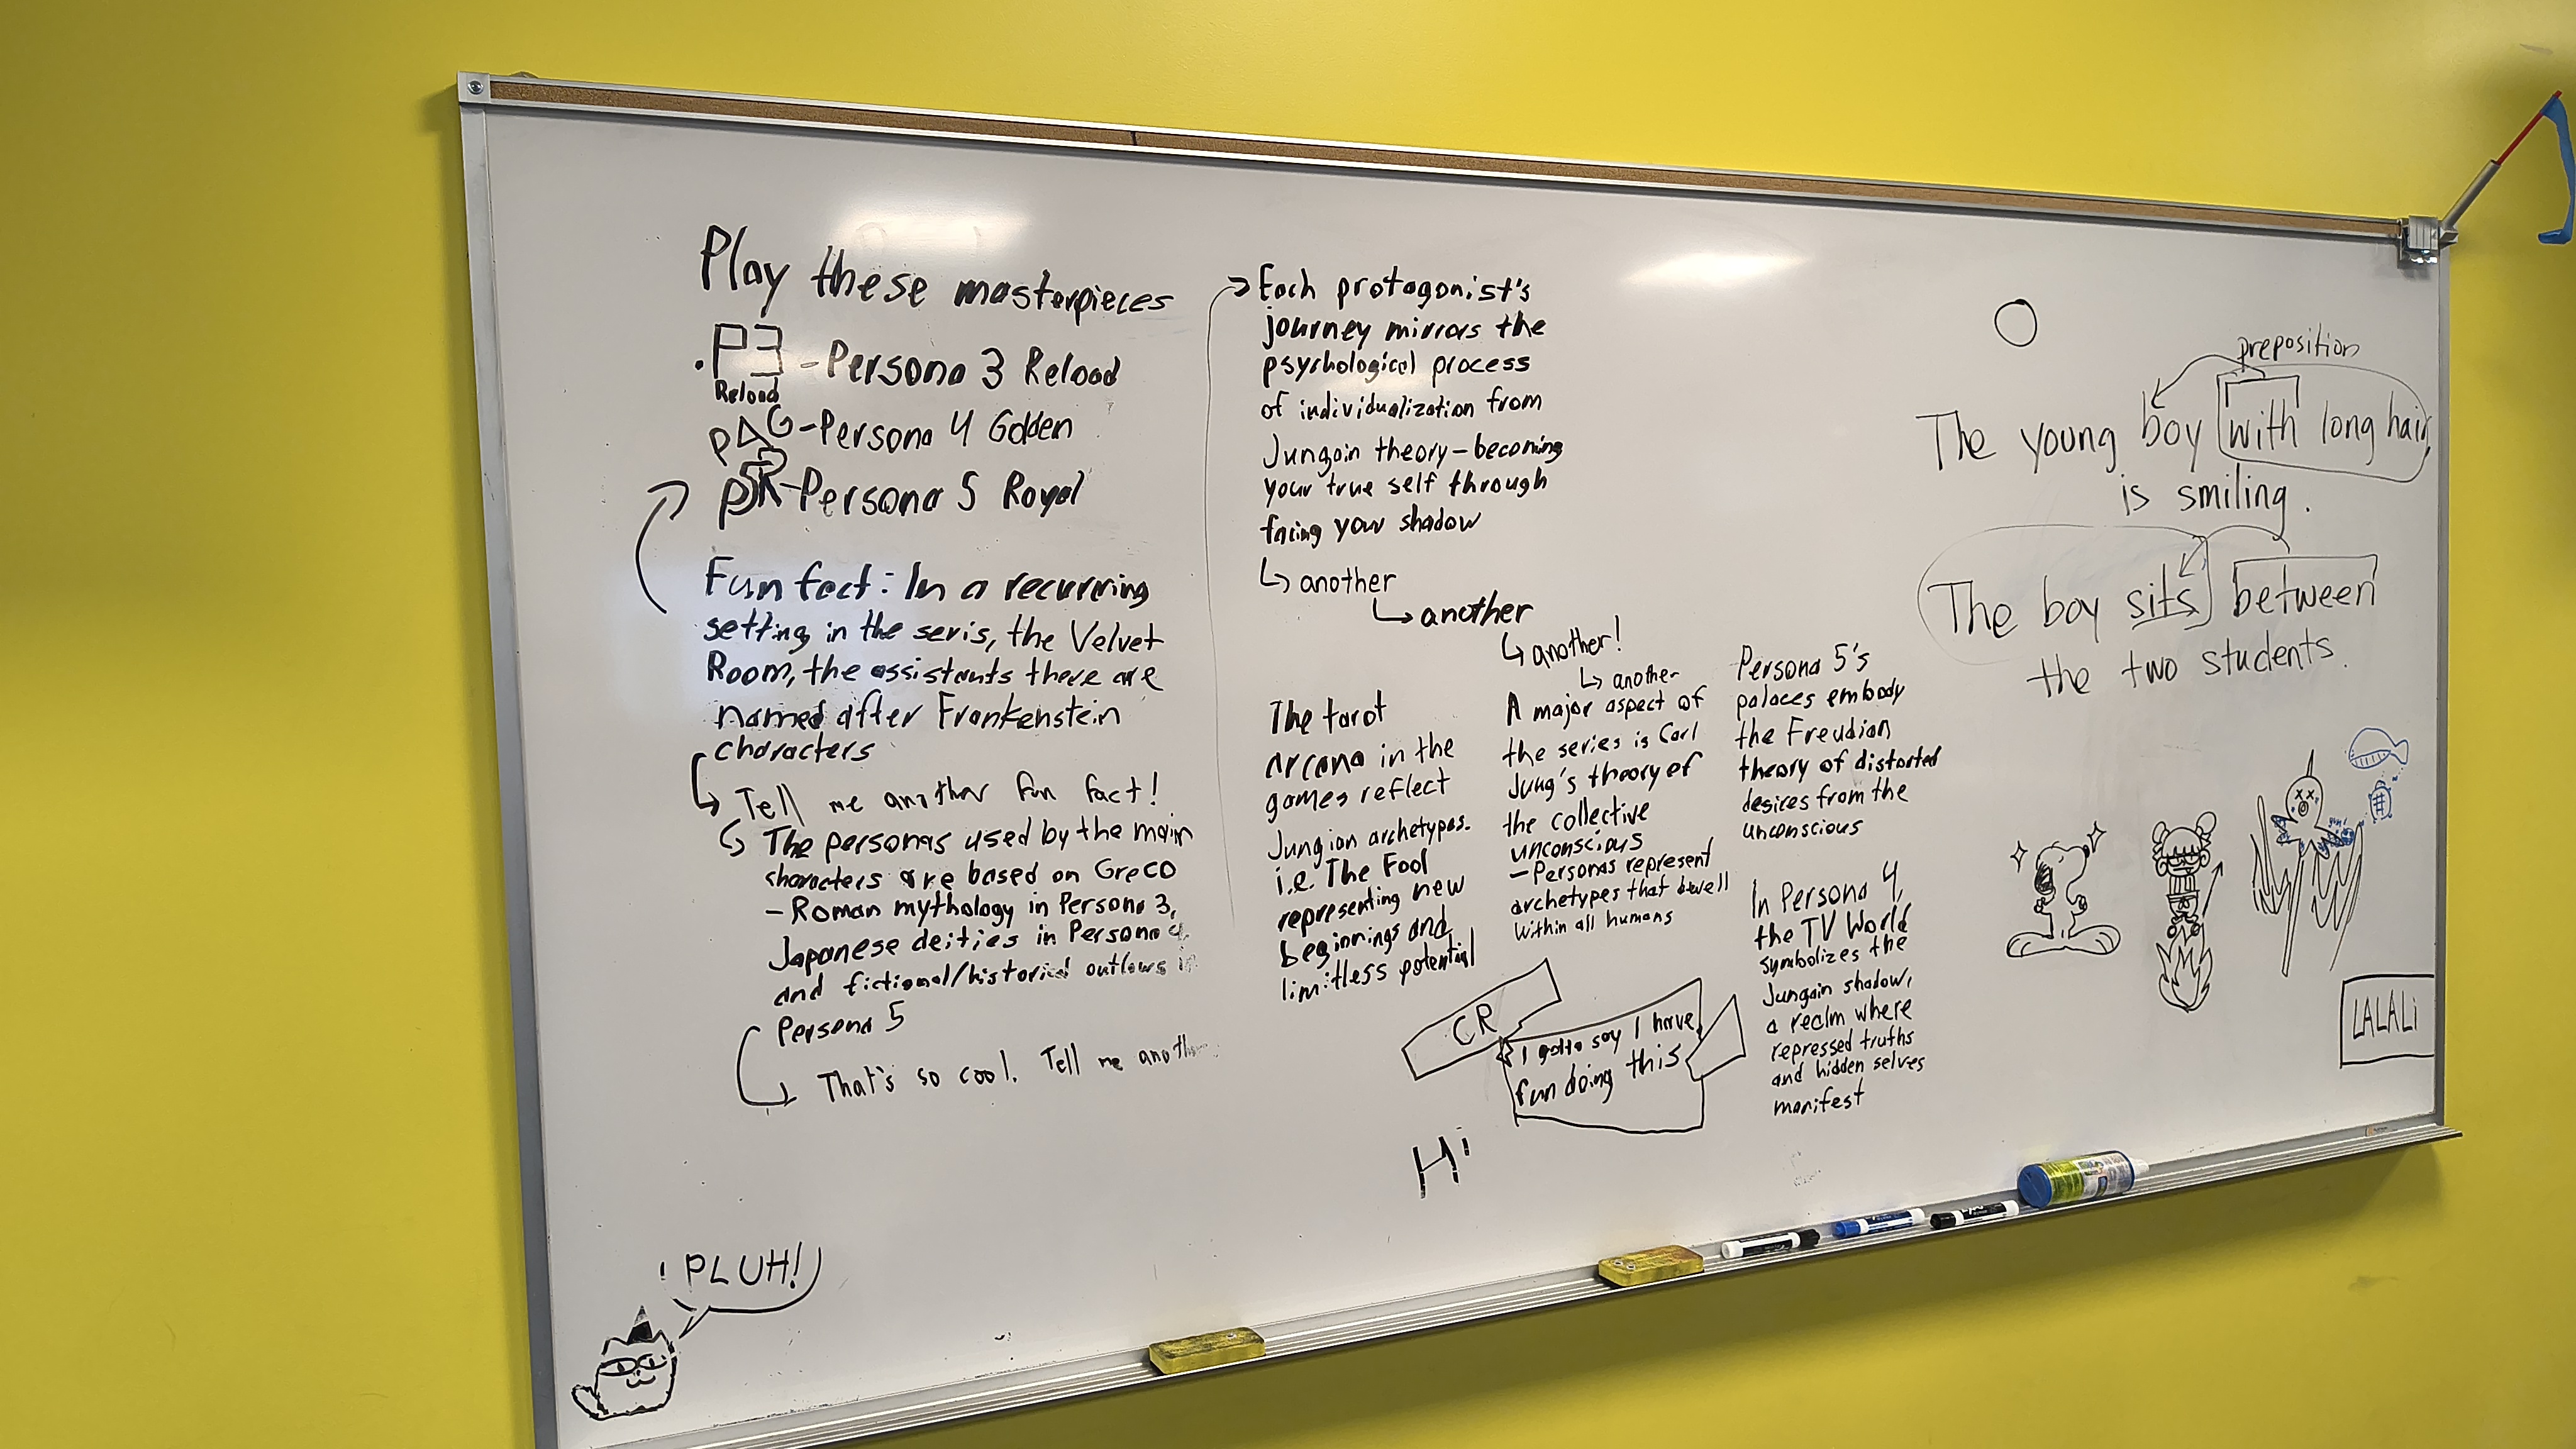 Play these masterpieces
P3 - Persona 3 Reload
Reload
P4G - Persona 4 Golden
P5R - Persona 5 Royal
Fun fact: In a recurring
setting in the seris, the Velvet
Room, the assistants there are
named after Frankenstein
characters
Tell me another fun fact!
The personas used by the main
characters are based on Greco
- Roman mythology in Persona 3,
Japanese deities in Persona 4
and fictional/historical outlaws in
Persona 5
That's so cool. Tell me another
PLUH!
Each protagonist's
journey mirrors the
psychological process
of individualization from
Jungain theory - becoming
your true self through
facing your shadow
another
another
another!
another
The tarot
arcana in the
games reflect
Jungian archetypes.
i.e. The Fool
representing new
beginnings and
limitless potential
A major aspect of
the series is Carl
Jung's theory of
the collective
unconscious
- Personas represent
archetypes that dwell
within all humans
Persona 5's
palaces embody
the Freudian
theory of distorted
desires from the
unconscious
In Persona 4,
the TV World
symbolizes the
Jungain shadow,
a realm where
repressed truths
and hidden selves
manifest
CR
I gotta say I have
fun doing this
Hi
preposition
The young boy with long hair
is smiling.
The boy sits between
the two students.
LALALi